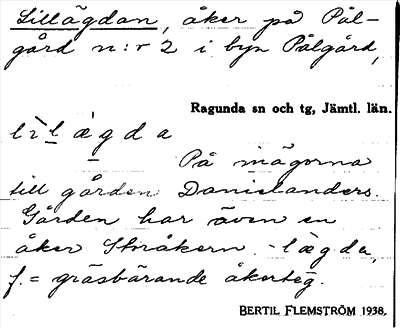 Lillägdan, åker på Pål-
gård n:r 2 i byn Pålgård,
Ragunda sn och tg, Jämtl. län.
lìlægda
På inägorna
till gården Danielanders.
Gården har även en
åker Storåkern. - lægda,
f. = gräsbärande åkerteg.
BERTIL FLEMSTRÖM 1938.